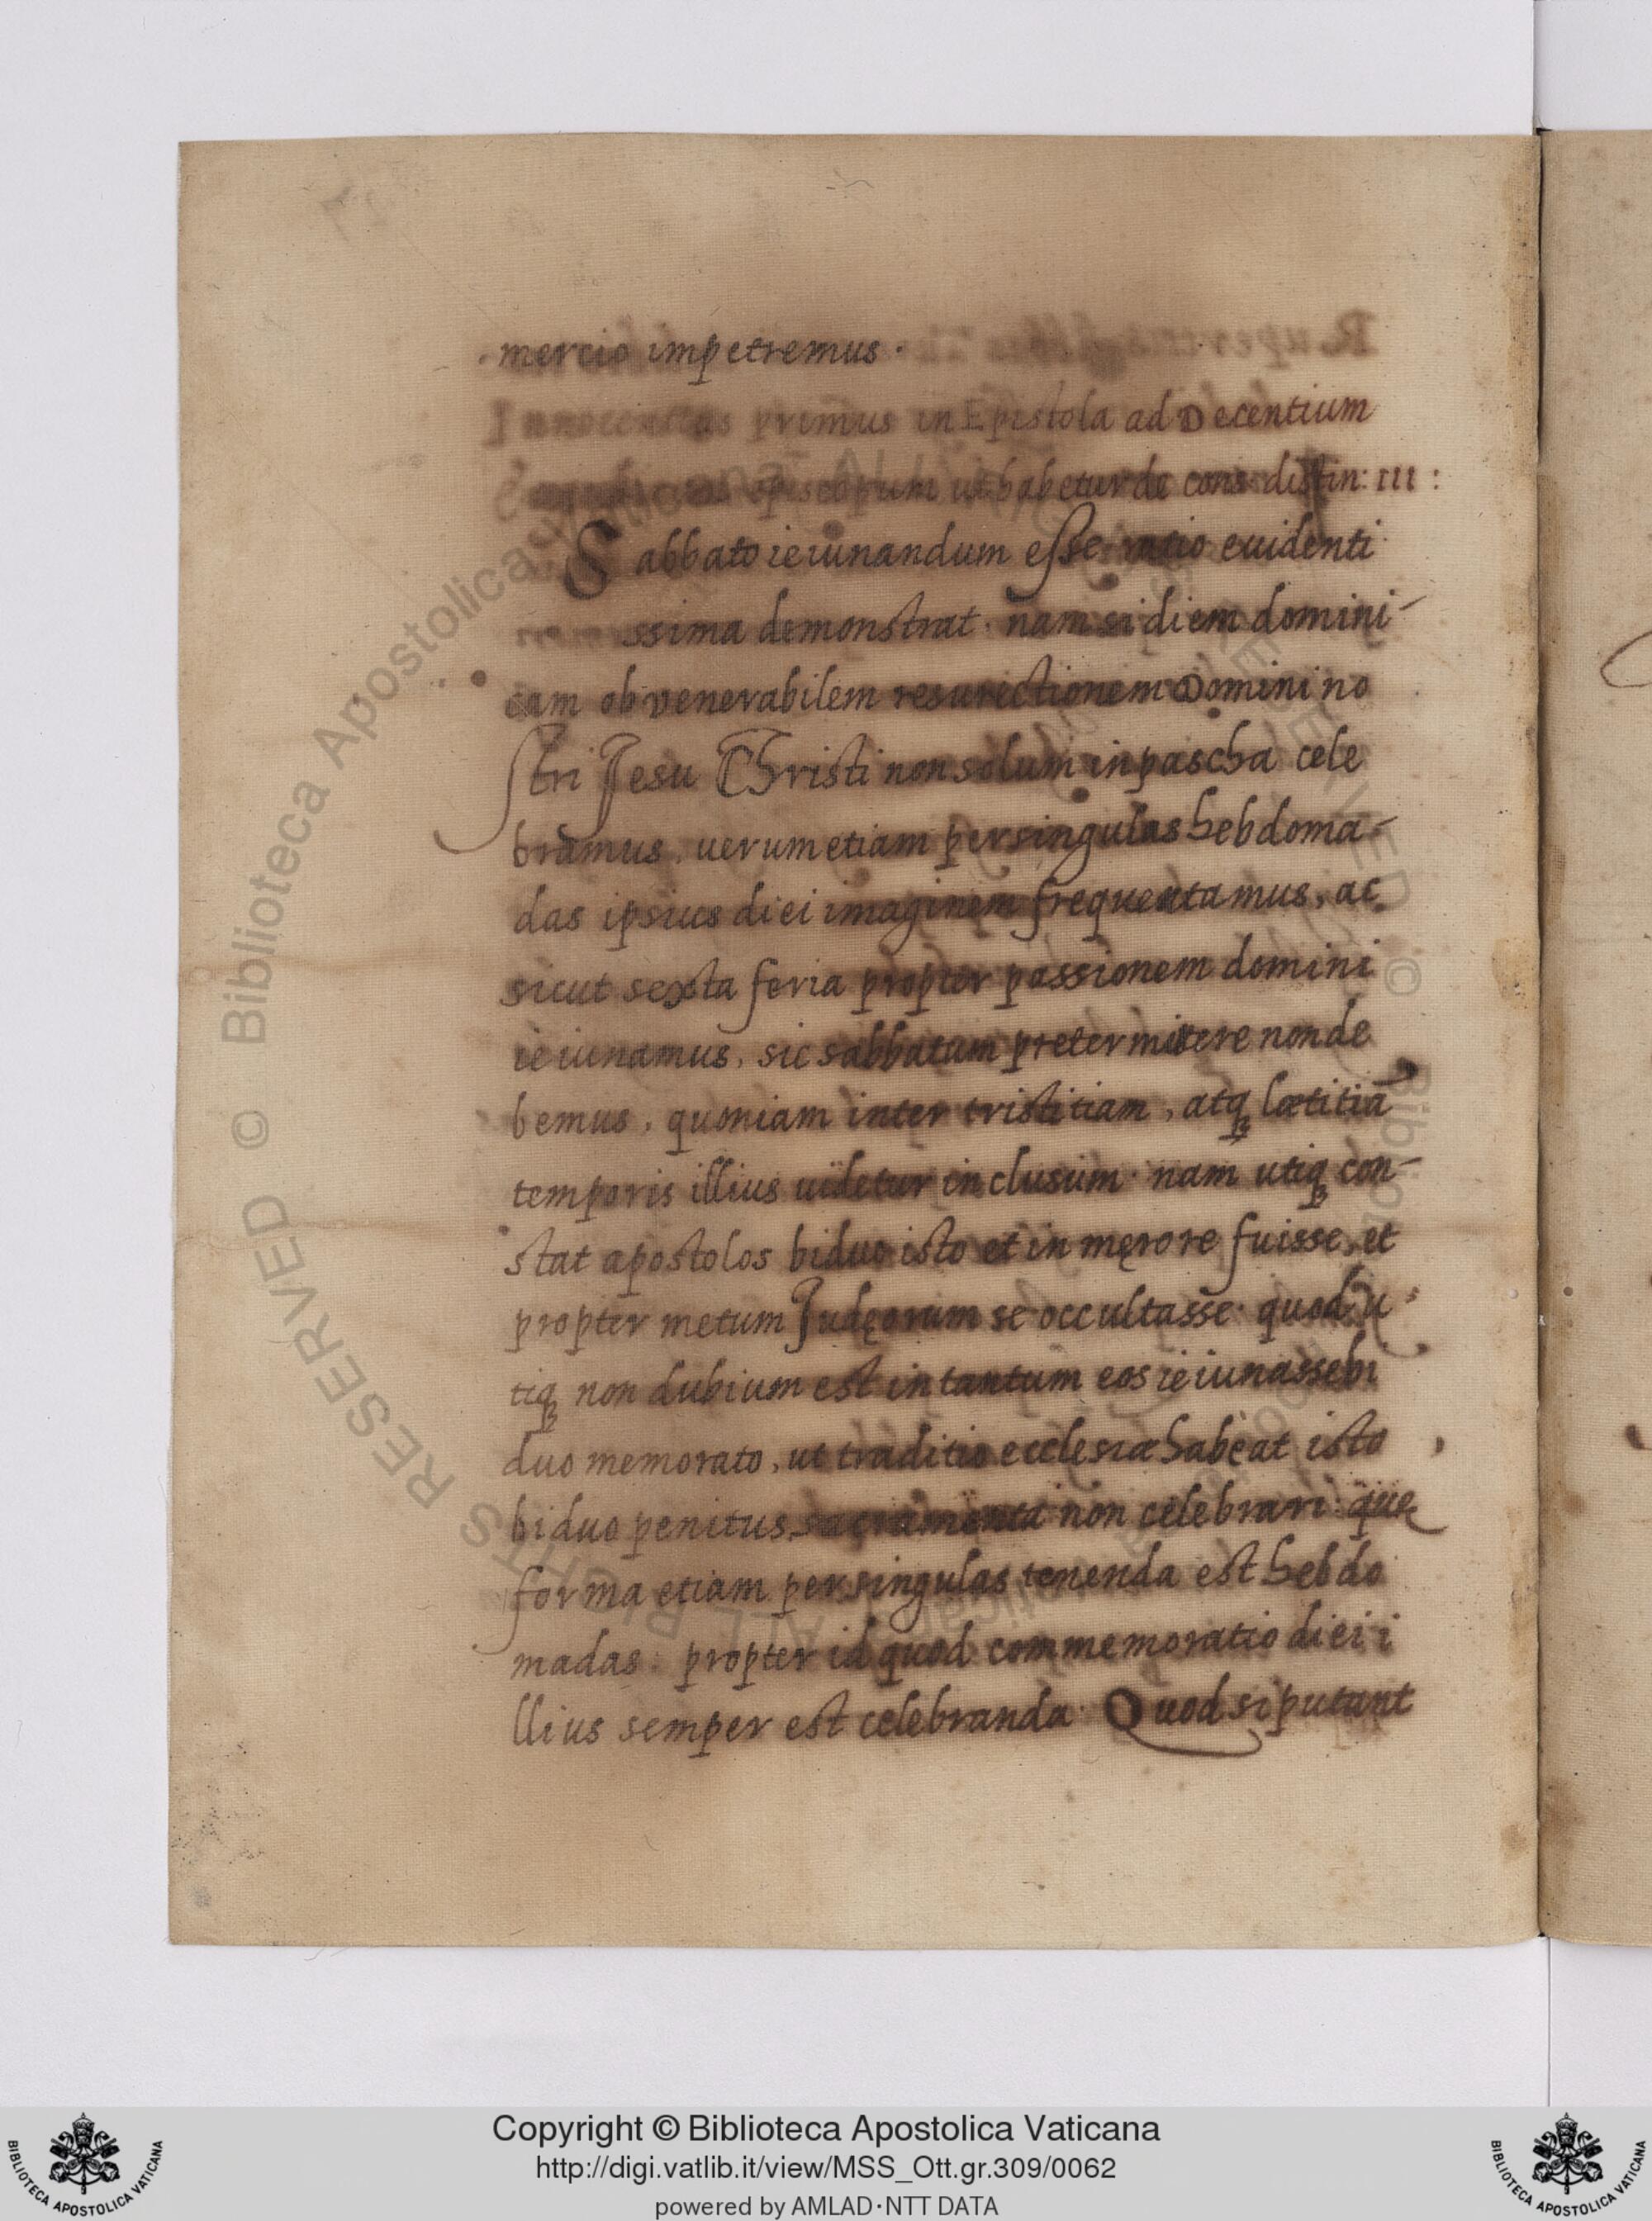 mercio impetremus.
Innocentius primus in Epistola ad Decentium
episcopum ut habetur de cons: distin: III:
Sabbato ieiunandum esse ratio euidenti
ssima demonstrat. nam si diem domini-
cam ob venerabilem resurectionem Domini no
stri Jesu Christi non solum in pascha cele
bramus, uerum etiam per singulas hebdoma-
das ipsius diei imaginem frequentamus, ac
sicut sexta feria propter passionem domini
ieiunamus, sic sabbatum pretermitere non de
bemus, quoniam inter tristitiam, atqꝫ lætitiā
temporis illius uidetur inclusum. nam utiqꝫ con-
stat apostolos biduo isto et in męrore fuisse, et
propter metum Judęorum se occultasse. quod u
tiqꝫ non dubium est in tantum eos ieiunasse bi
duo memorato, ut traditio ecclesiæ habeat isto
biduo penitus sacramenta non celebrari: quę
forma etiam per singulas tenenda est hebdo
madas: propter id quod commemoratio diei i
llius semper est celebranda. Quod si putant
Copyright © Biblioteca Apostolica Vaticana
http://digi.vatlib.it/view/MSS_Ott.gr.309/0062
powered by AMLAD·NTT DATA